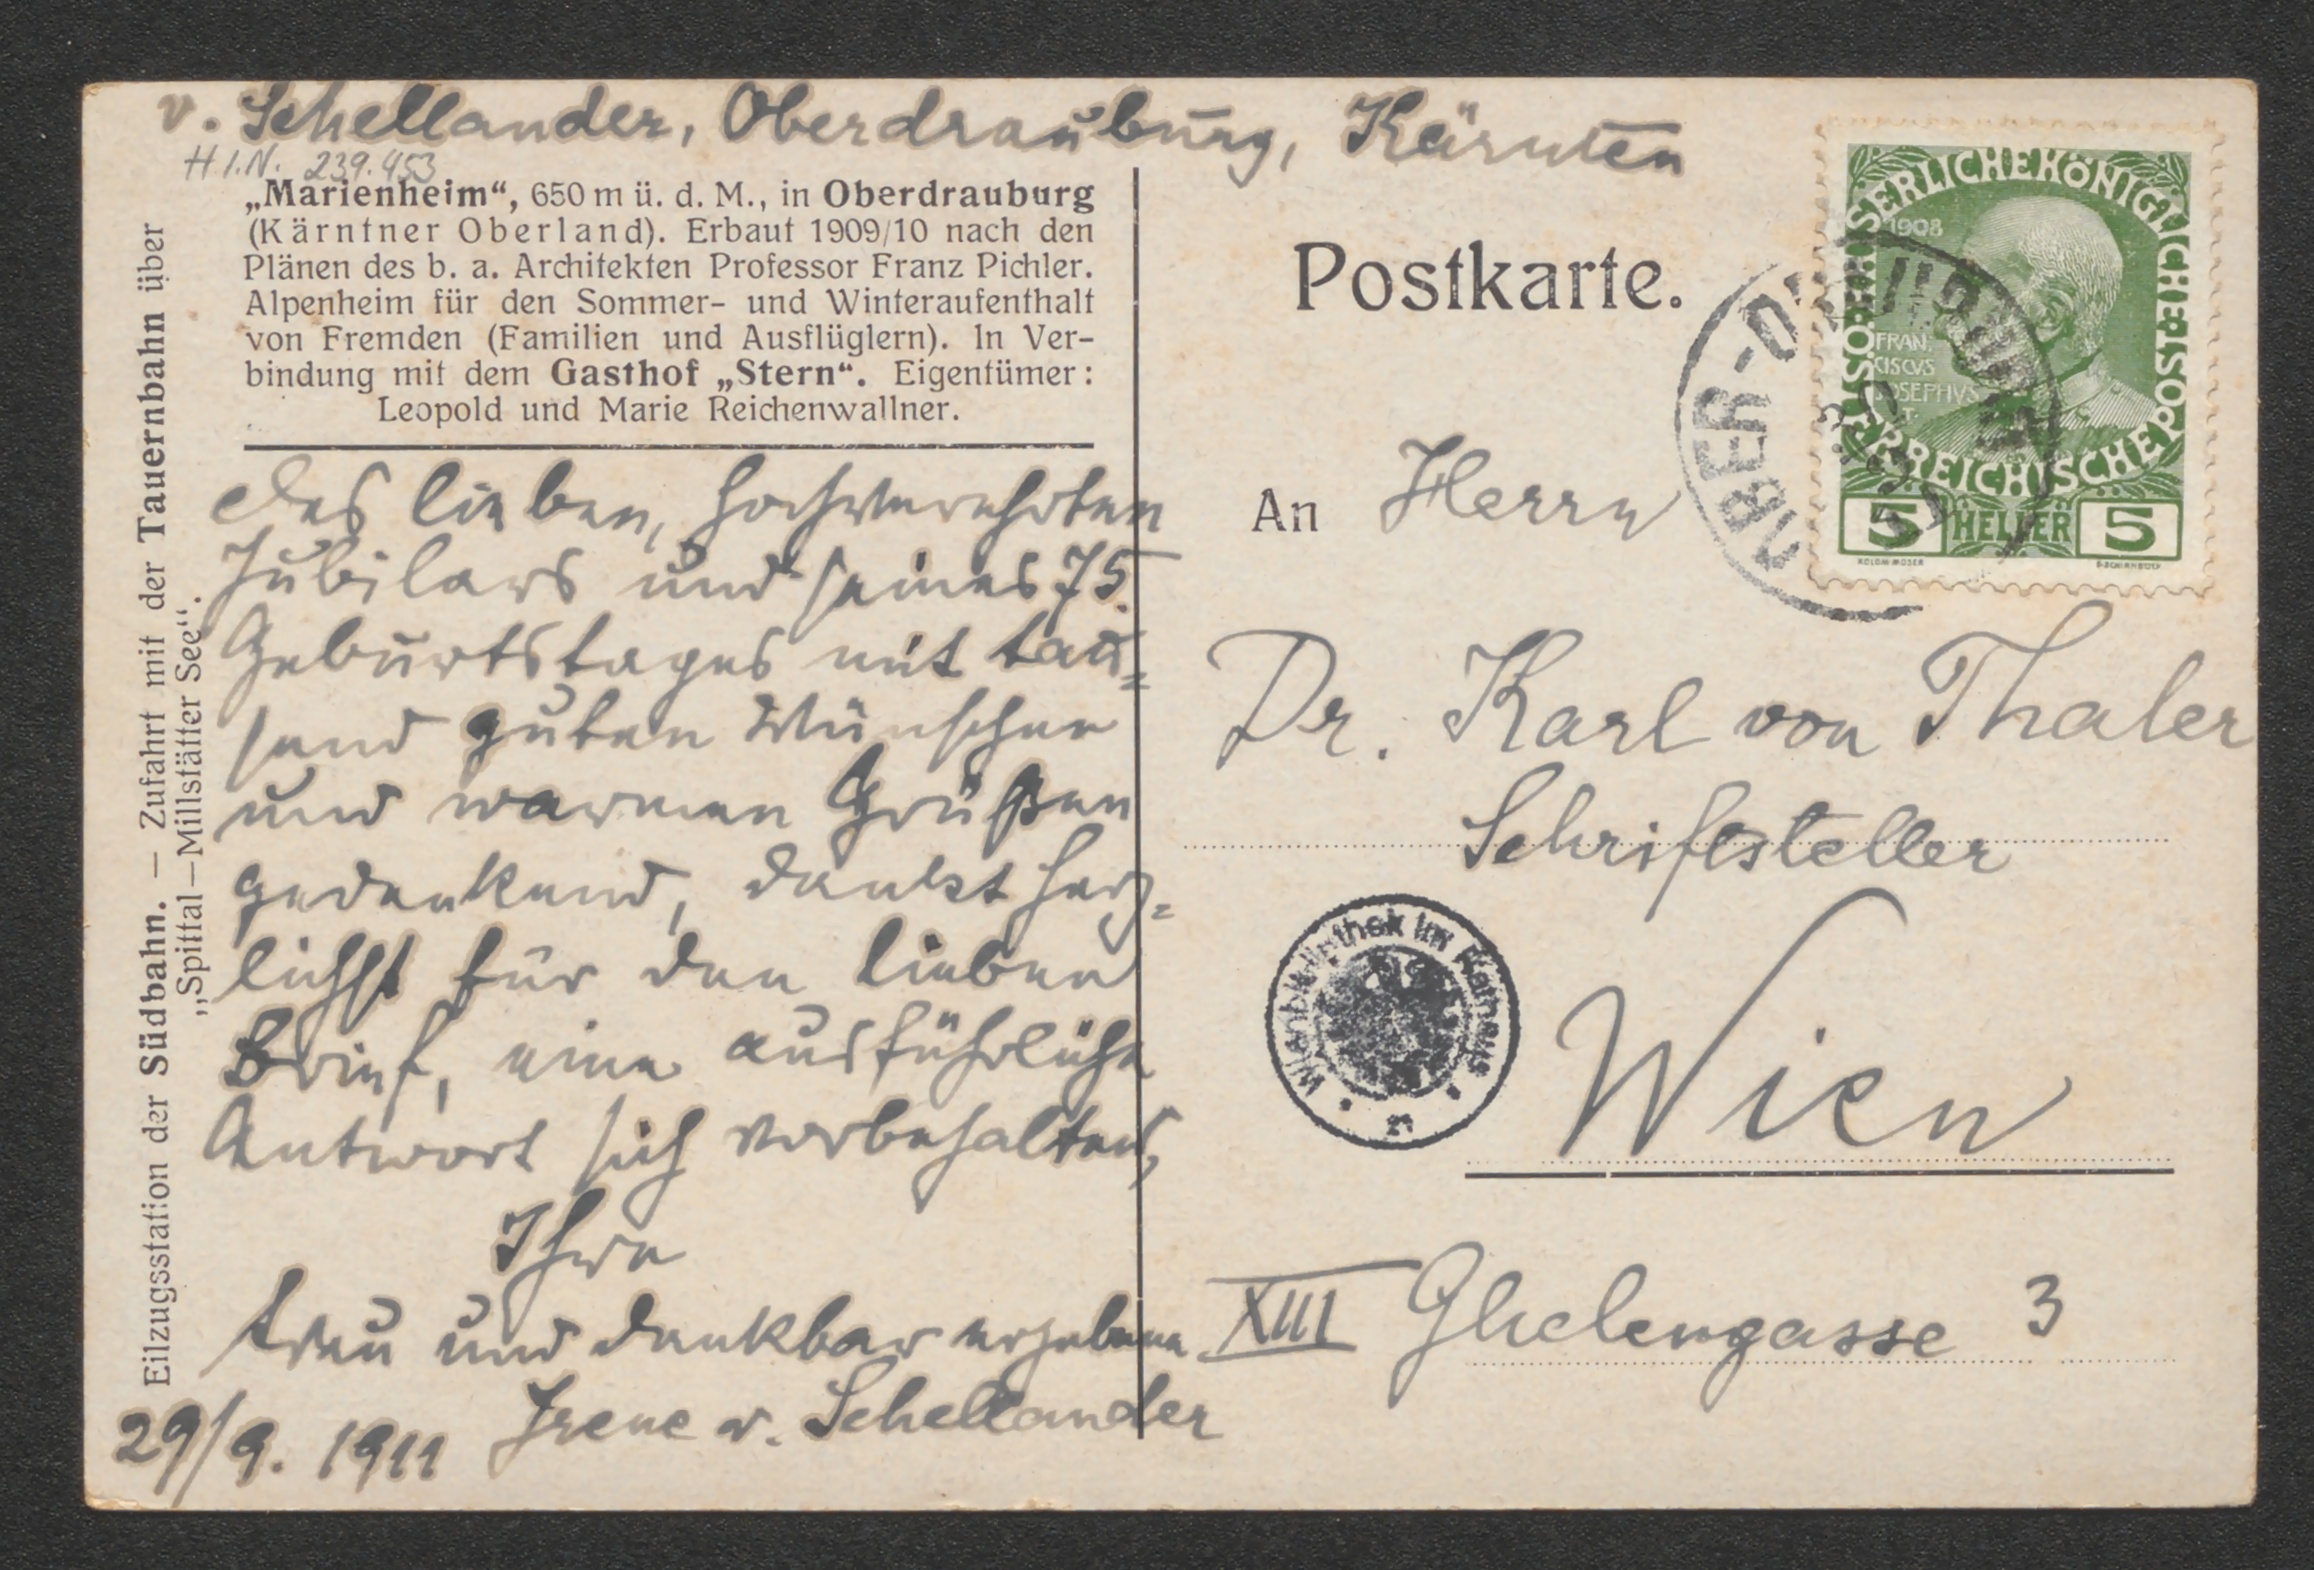 v. Schellander, Oberdrauburg, Kärnten
H.I.N. 239.453
„Marienheim“, 650 m ü. d. M., in Oberdrauburg
(Kärntner Oberland). Erbaut 1909/10 nach den
Plänen des b. a. Architekten Professor Franz Pichler.
Alpenheim für den Sommer- und Winteraufenthalt
von Fremden (Familien und Ausflüglern). In Ver-
bindung mit dem Gasthof „Stern“. Eigentümer:
Leopold und Marie Reichenwallner.
Eilzugsstation der Südbahn. — Zufahrt mit der Tauernbahn über
„Spittal—Millstätter See“.
Des lieben, hochverehrten
Jubilars und seines 75.
Geburtstages mit tau=
send guten Wünschen
und warmen Grüßen
gedenkend, dankt herz=
lichst für den lieben
Brief, eine ausführliche
Antwort sich vorbehaltend,
Ihre
treu und dankbar ergebene
Irene v. Schellander
29/9. 1911
Postkarte.
KAISERLICHE KÖNIGLICHE ÖSTERREICHISCHE POST
1908
FRAN
CISCVS
IOSEPHVS
I
5 HELLER 5
KOLOM·MOSER
F·SCHIRNBÖCK
OBER-DRAUBURG
An Herrn
Dr. Karl von Thaler
Schriftsteller
Wien
XIII Ghelengasse 3
Wienbibliothek im Rathaus